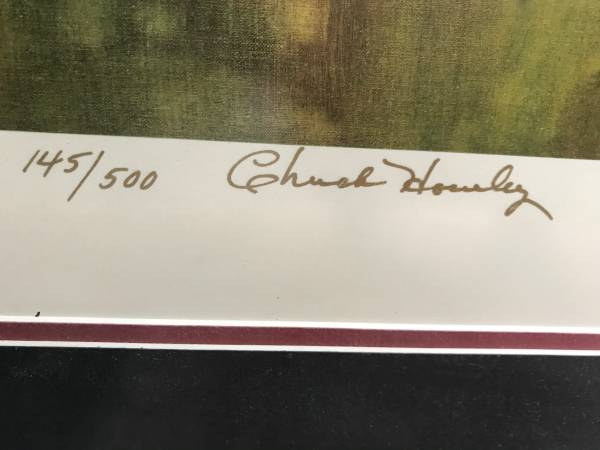 145/500 Chuck Howley